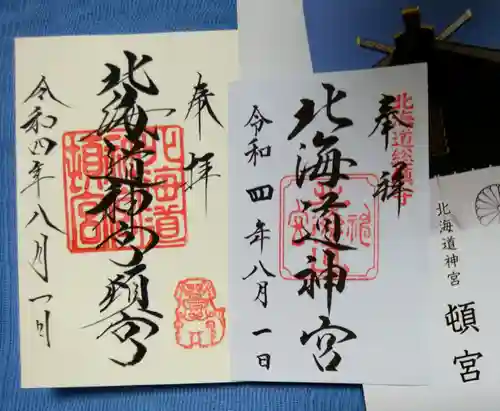 奉拝
北海道神宮頓宮
令和四年八月一日
北海道
頓宮
奉拝
北海道総鎮守
北海道神宮
令和四年八月一日
北海道神宮
頓宮